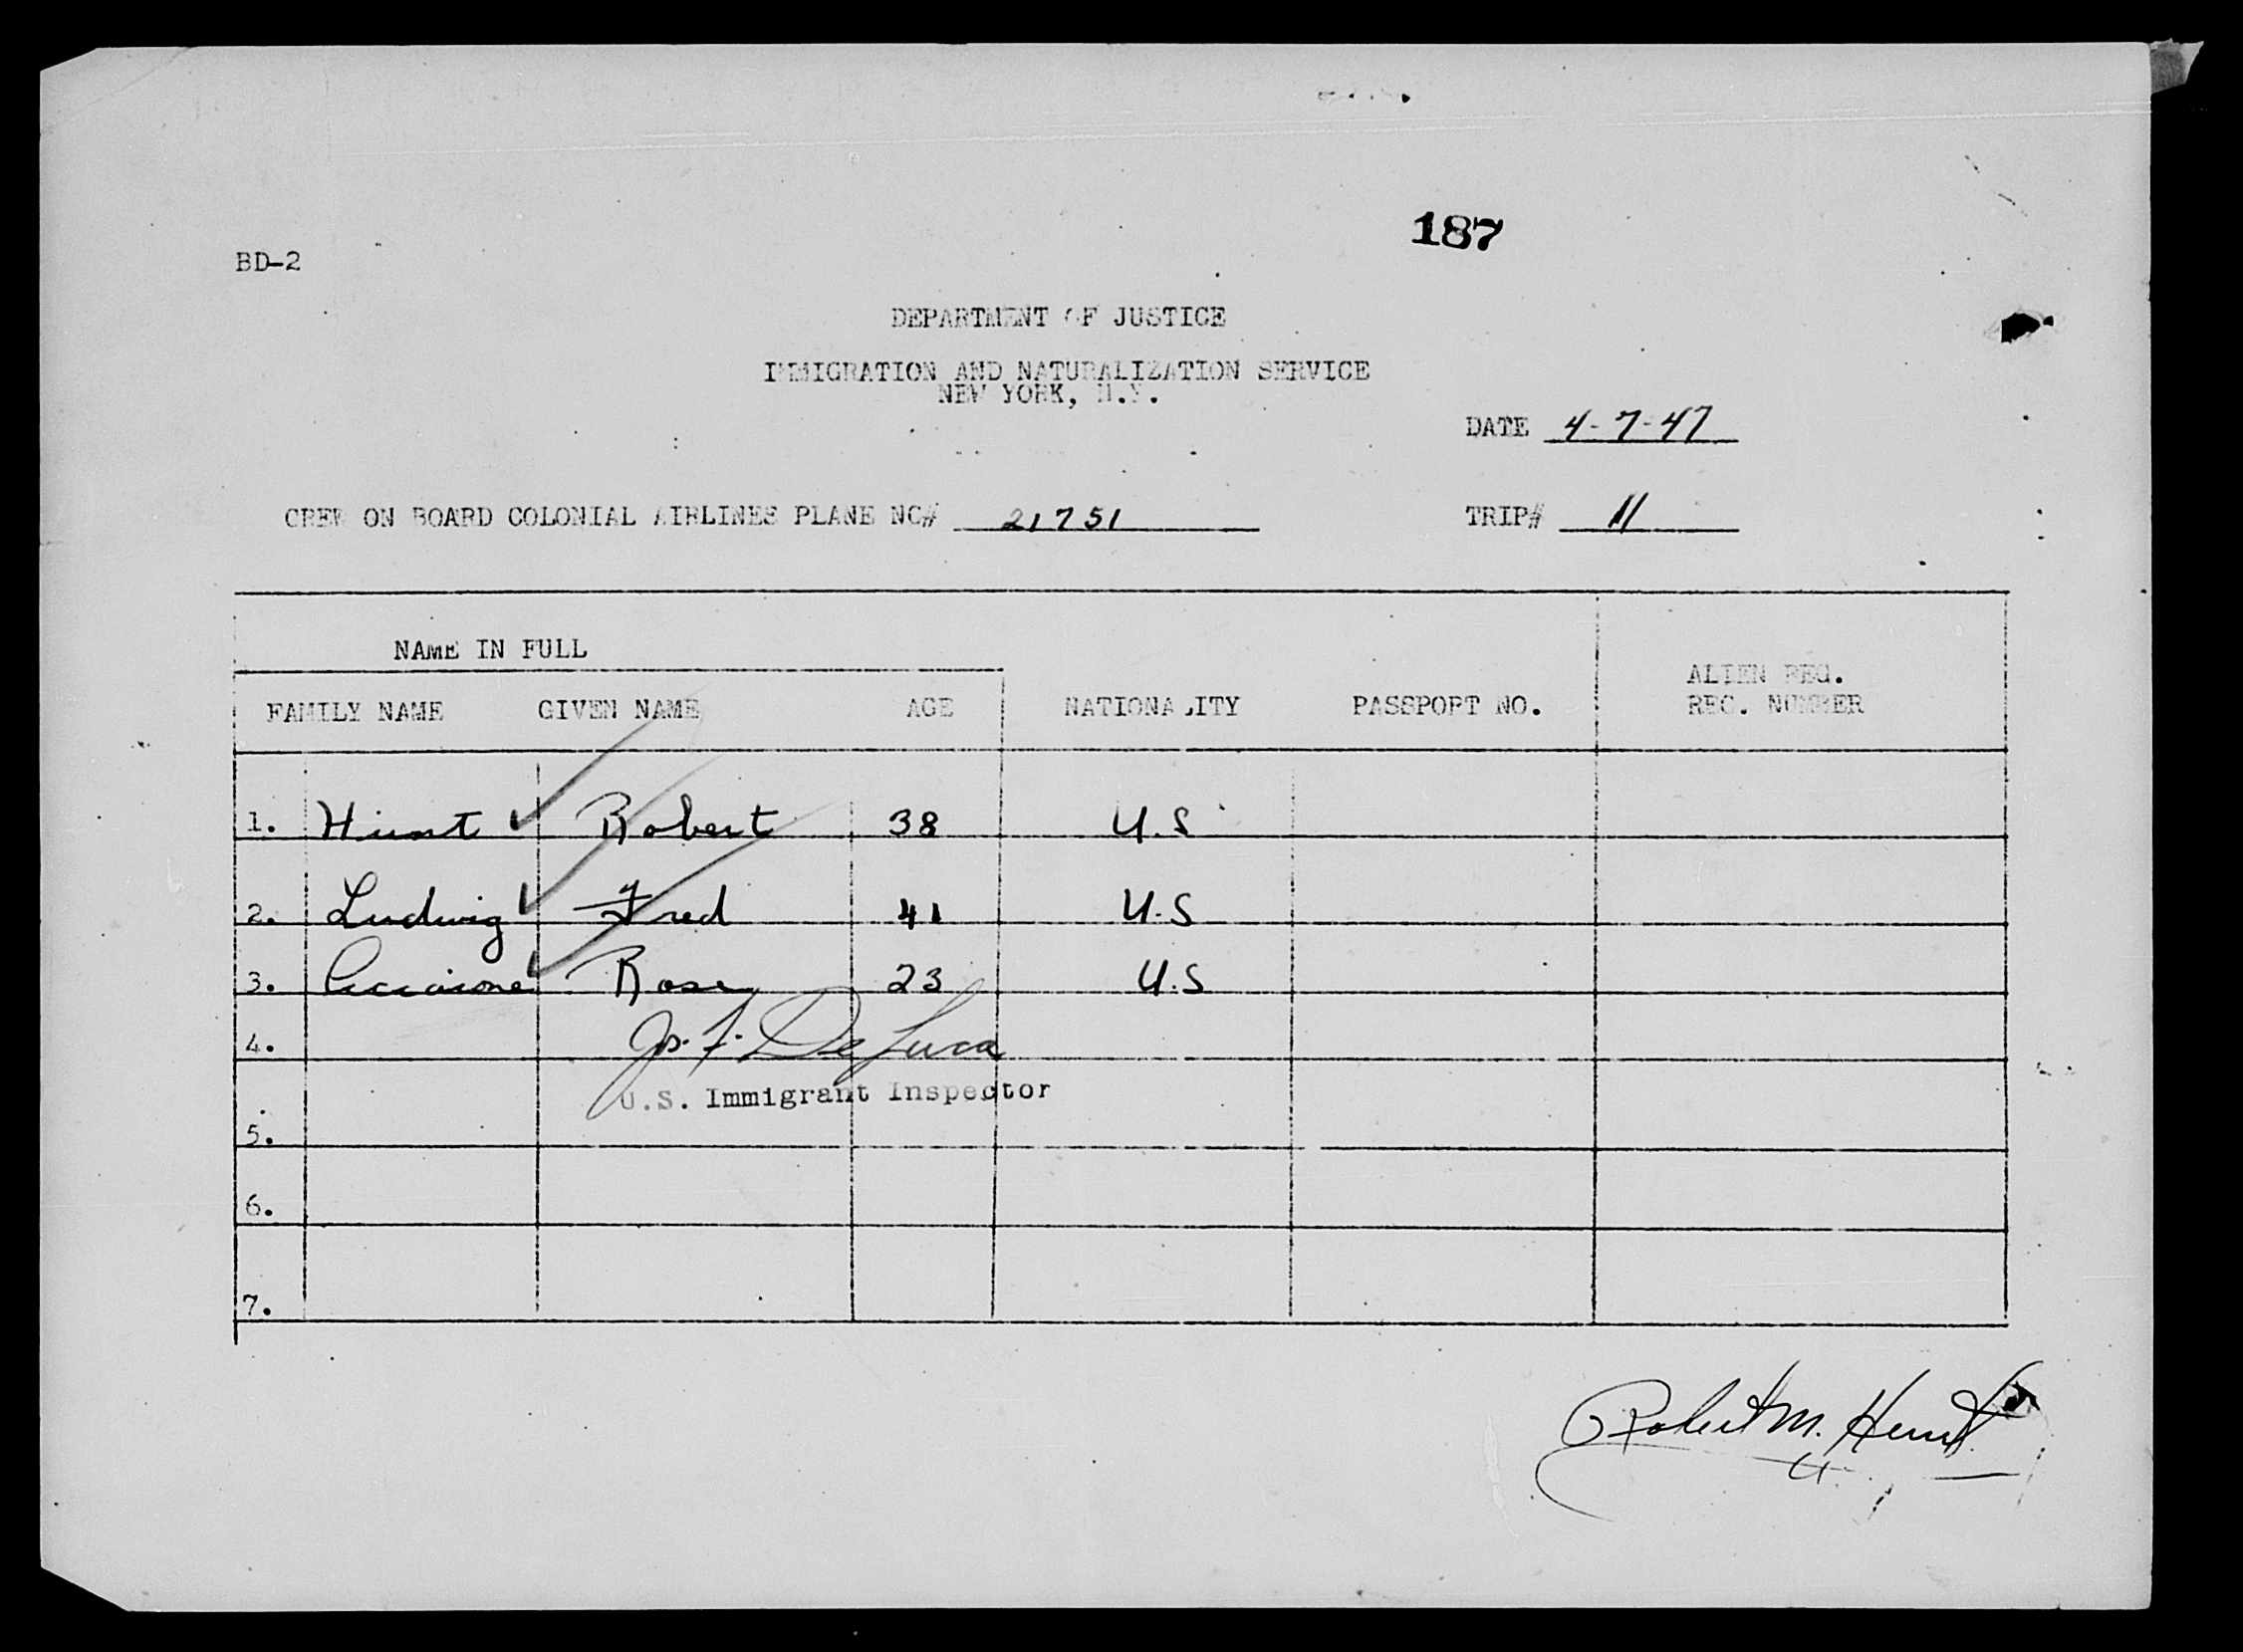 187
BD-2
DEPARTMENT OF JUSTICE
IMMIGRATION AND NATURALIZATION SERVICE
NEW YORK, N.Y.
DATE 4-7-47
CREW ON BOARD COLONIAL AIRLINES PLANE NC# 21751
TRIP# 11
NAME IN FULL
FAMILY NAME GIVEN NAME AGE NATIONALITY PASSPORT NO. ALIEN REG.
REC. NUMBER
1. Hunt Robert 38 U.S
2. Ludwig Fred 41 U.S
3. Rose 23 U.S
Jos. F. DeLuca
4.
U.S. Immigrant Inspector
5.
6.
7.
Robert M. Hunt